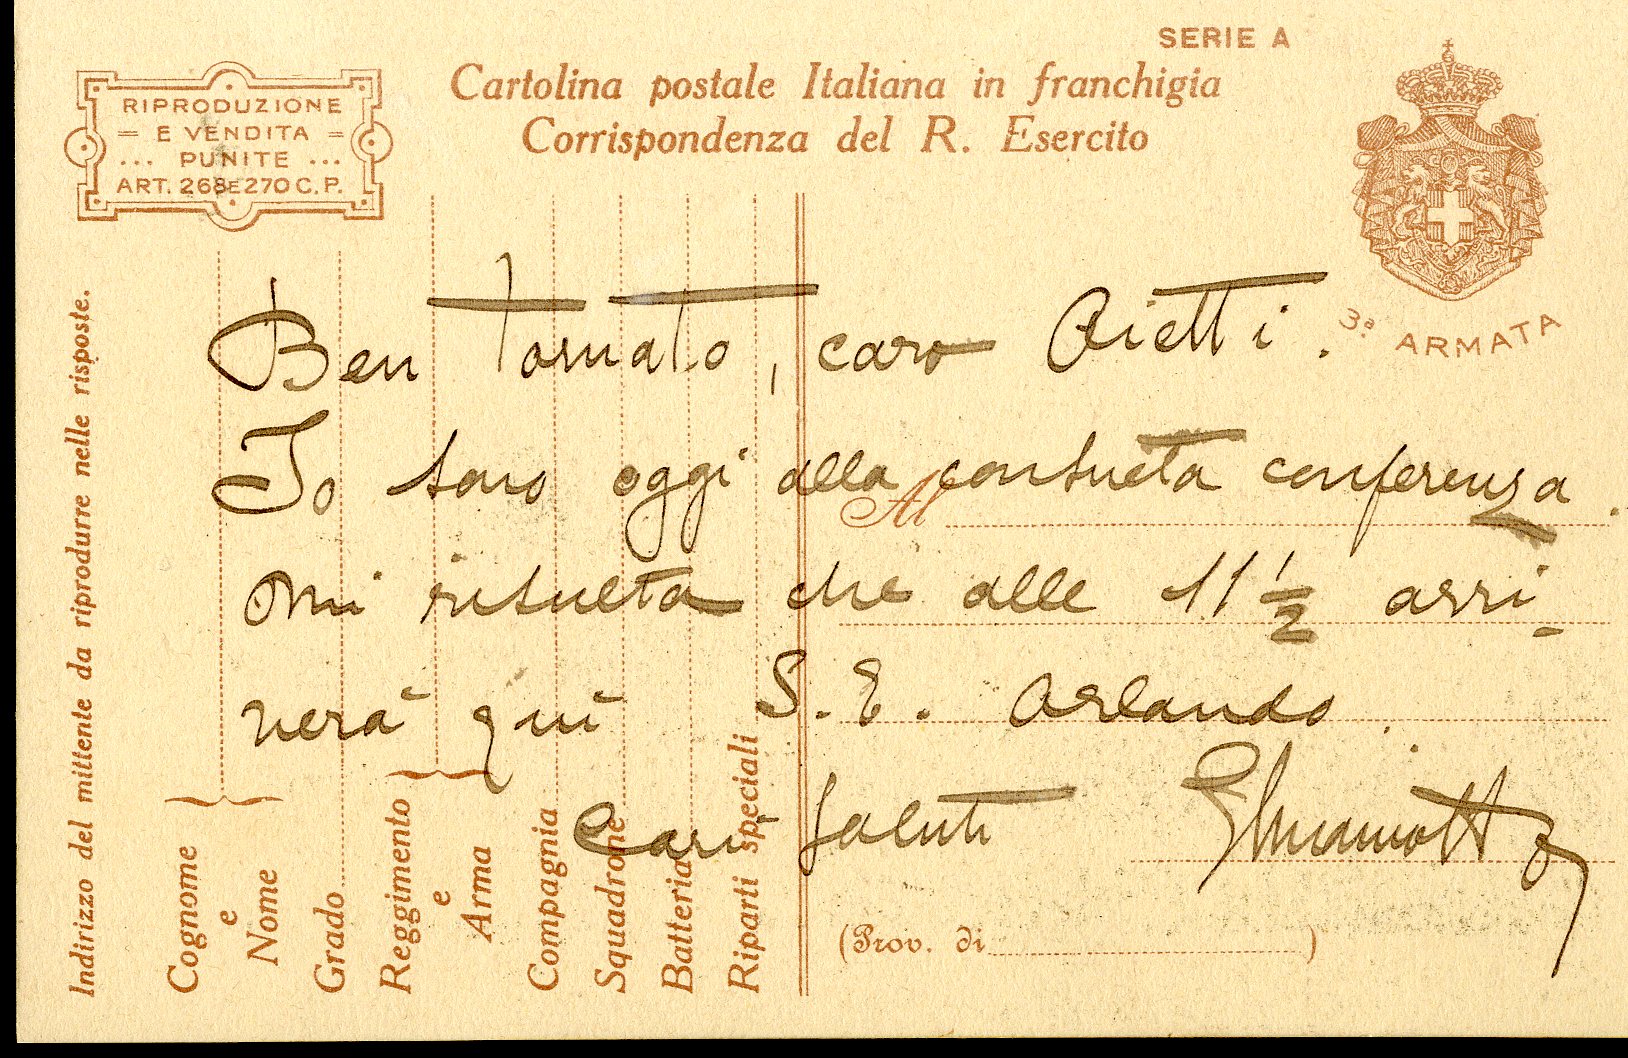 SERIE A
Cartolina postale Italiana in franchigia
Corrispondenza del R. Esercito
RIPRODUZIONE
= E VENDITA =
... PUNITE ...
ART. 268 E 270 C. P.
3ª ARMATA
Ben tornato, caro Rietti.
Io sono oggi alla consueta conferenza.
Al
Mi risulta che alle 11 1/2 arri-
verà qui S. E. Orlando.
Cari saluti
(Prov. di )
Indirizzo del mittente da riprodurre nelle risposte.
Cognome
e
Nome
Grado
Reggimento
e
Arma
Compagnia
Squadrone
Batteria
Riparti speciali